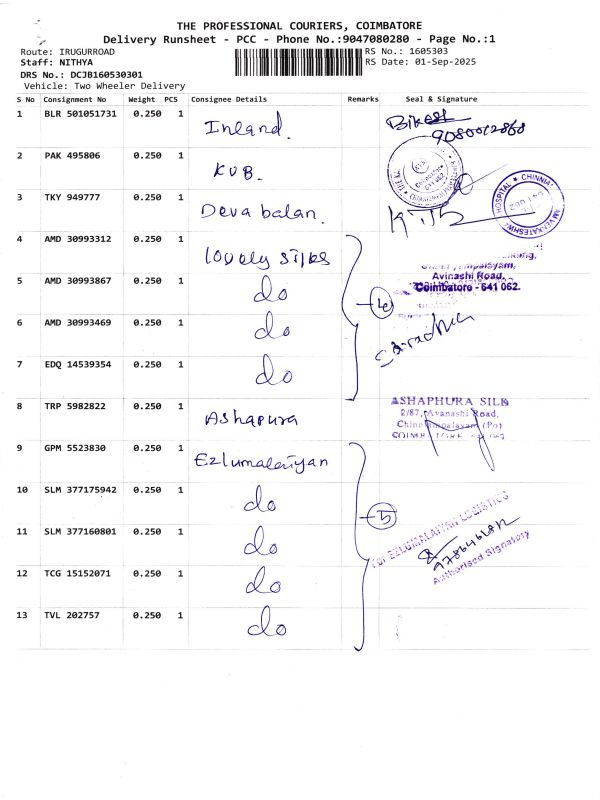 THE PROFESSIONAL COURIERS, COIMBATORE
Delivery Runsheet - PCC - Phone No.:9047080280 - Page No.:1
Route: IRUGURROAD
RS No.: 1605303
Staff: NITHYA
RS Date: 01-Sep-2025
DRS No.: DCJB160530301
Vehicle: Two Wheeler Delivery
S No Consignment No Weight PCS Consignee Details Remarks Seal & Signature
1 BLR 501051731 0.250 1 Inland.
9080012868
2 PAK 495806 0.250 1 KVB.
3 TKY 949777 0.250 1 Deva balan.
HOSPITAL * CHINNIA
4 AMD 30993312 0.250 1 lovely silks
Avinashi Road,
5 AMD 30993867 0.250 1 do
Coimbatore - 641 062.
6 AMD 30993469 0.250 1 do
7 EDQ 14539354 0.250 1 do
8 TRP 5982822 0.250 1 Ashapura
ASHAPHURA SILK
2/87, Avanashi Road,
(Po)
9 GPM 5523830 0.250 1 Ezlumalaiyan
10 SLM 377175942 0.250 1 do
5
11 SLM 377160801 0.250 1 do
For EZLUMALAIYAN LOGISTICS
Authorised Signatory
12 TCG 15152071 0.250 1 do
13 TVL 202757 0.250 1 do